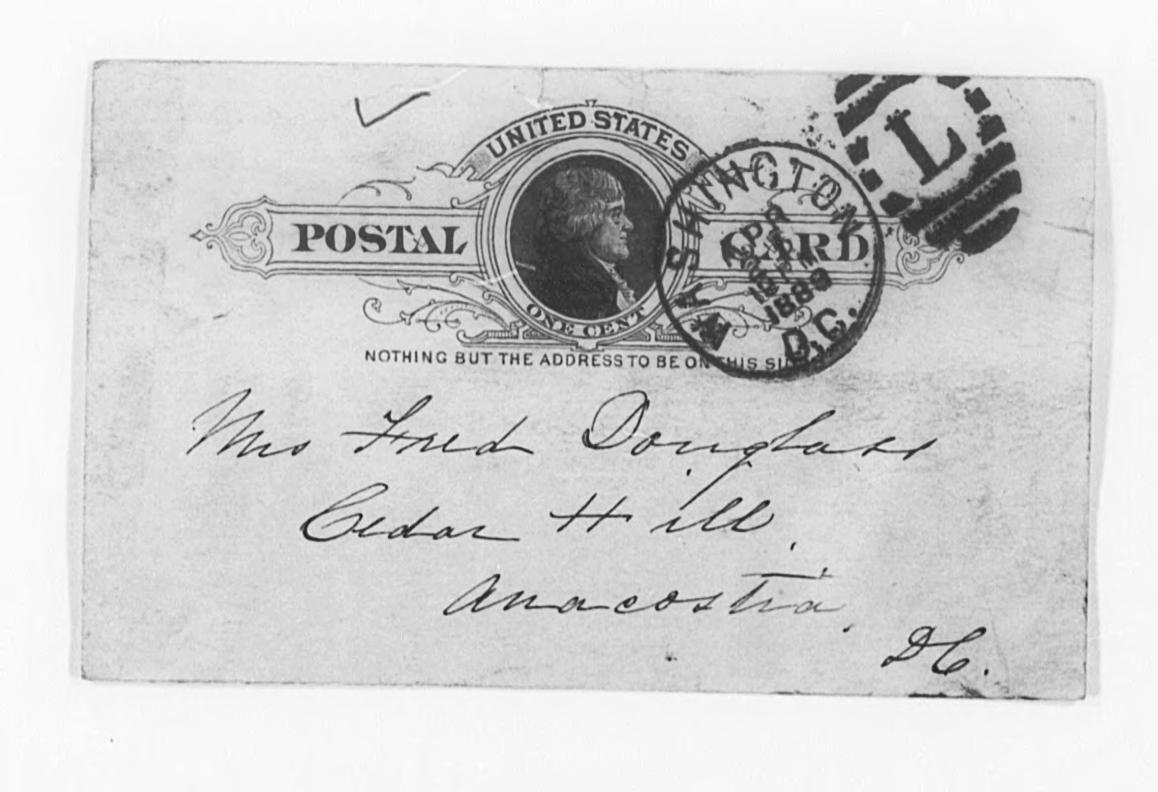 UNITED STATES
POSTAL CARD
ONE CENT
NOTHING BUT THE ADDRESS TO BE ON THIS SIDE
L
WASHINGTON
APR
1889
D.C.
Mrs Fred Douglass
Cedar Hill,
Anacostia,
DC.